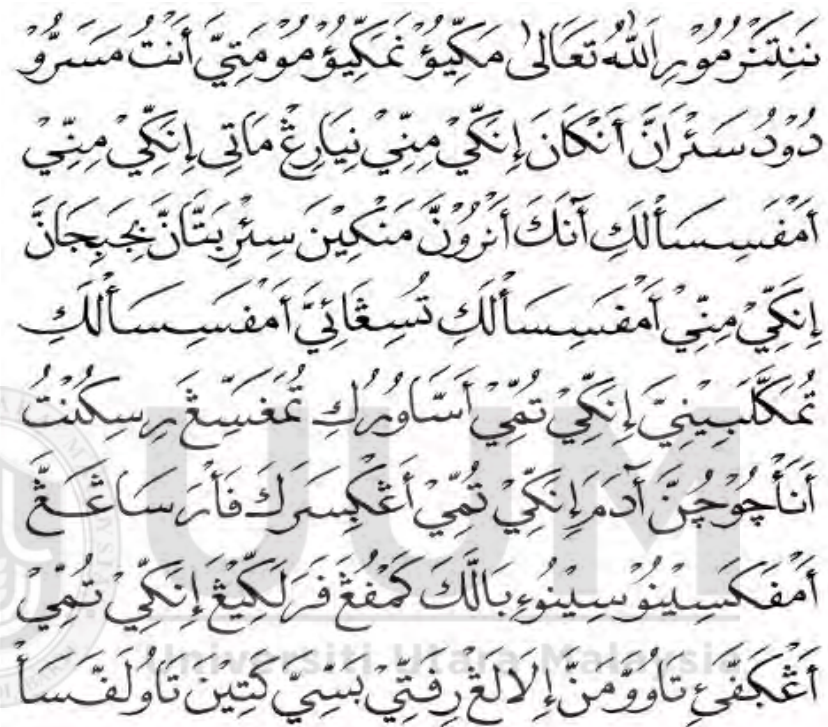 نَنِتَنَرُمُوْرِ اَللّٰهُ تَعَالىٰ مَكِّيُؤْ نَمَكِّيُؤْ مُوْمَتِيَّ أَنْتُ مَسَرُّوْ
دُوْدُ سَئْرَانَّ أَنْكَانَ إِنَكِّيْ مِنِّيْ نِيَارِغْ مَاتِى إِنَكِّيْ مِنِّيْ
أَمْفَسِسَأْلَكِ آنَكَ أَنْرُوْنَّ مَنْكِيْنَ سِئْرِبَتَّانَّ بِجَبِجَانَّ
إِنَكِّيْ مِنِّيْ أَمْفَسِسَأْلَكِ تُسِغَائِيَّ أَمْفَسِسَأْلَكِ
تُمَكَّلَبِيْنِيَّ إِنَكِّيْ تُمِّيْ أَسَّاوُرُكِ تُمَغَسِّغَ رِسِكُنْتُ
أَنَأْچُوْچُنَّ آدَمَ إِنَكِّيْ تُمِّيْ أَغْكِسَرَكَ فَأْرَسَاغَغَّ
أَمْفَكَسِيْنُوْسِيْنُوْءِ بَالَّكَ كَمْفُغْ فَرَلَكِّيْغَ إِنَكِّيْ تُمِّيْ
أَغْكَفِّيءِ تَاوُوَّمَنَّ إِلَالَغْ رِفَتِّيْ بَسِّيَّ كَتِيْنَ تَاوُلَفَّسَأْ
UUM
Universiti Utara Malaysia